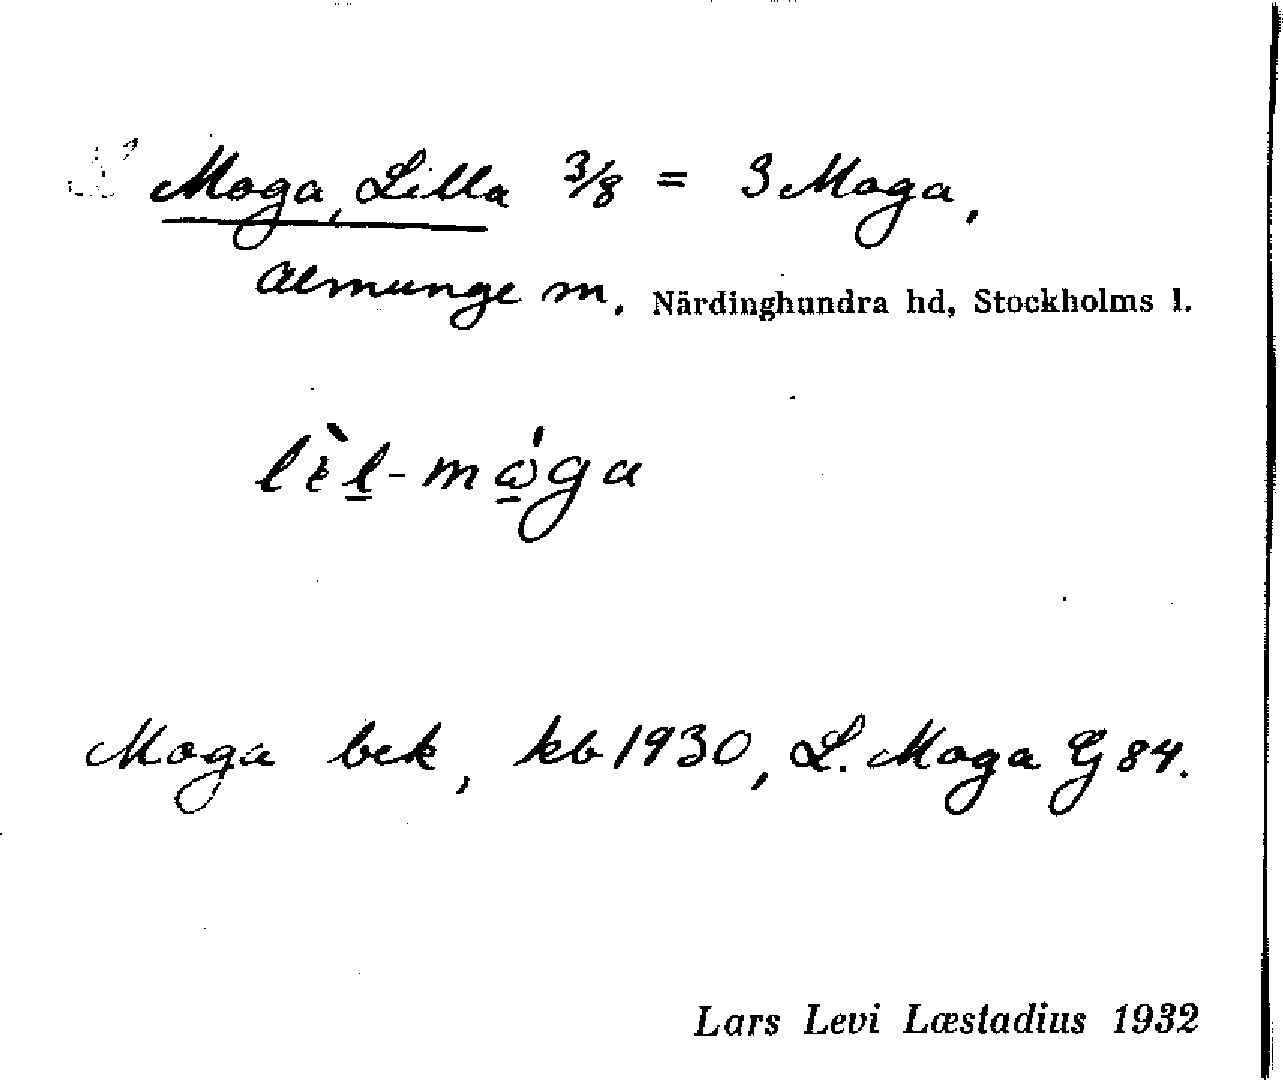 Moga, Lilla 3/8 = 3 Moga,
Almunge m. Närdinghundra hd, Stockholms l.
lìl-mɷ̀ga
Moga bek, kb 1930, L. Moga G 84.
Lars Levi Læstadius 1932